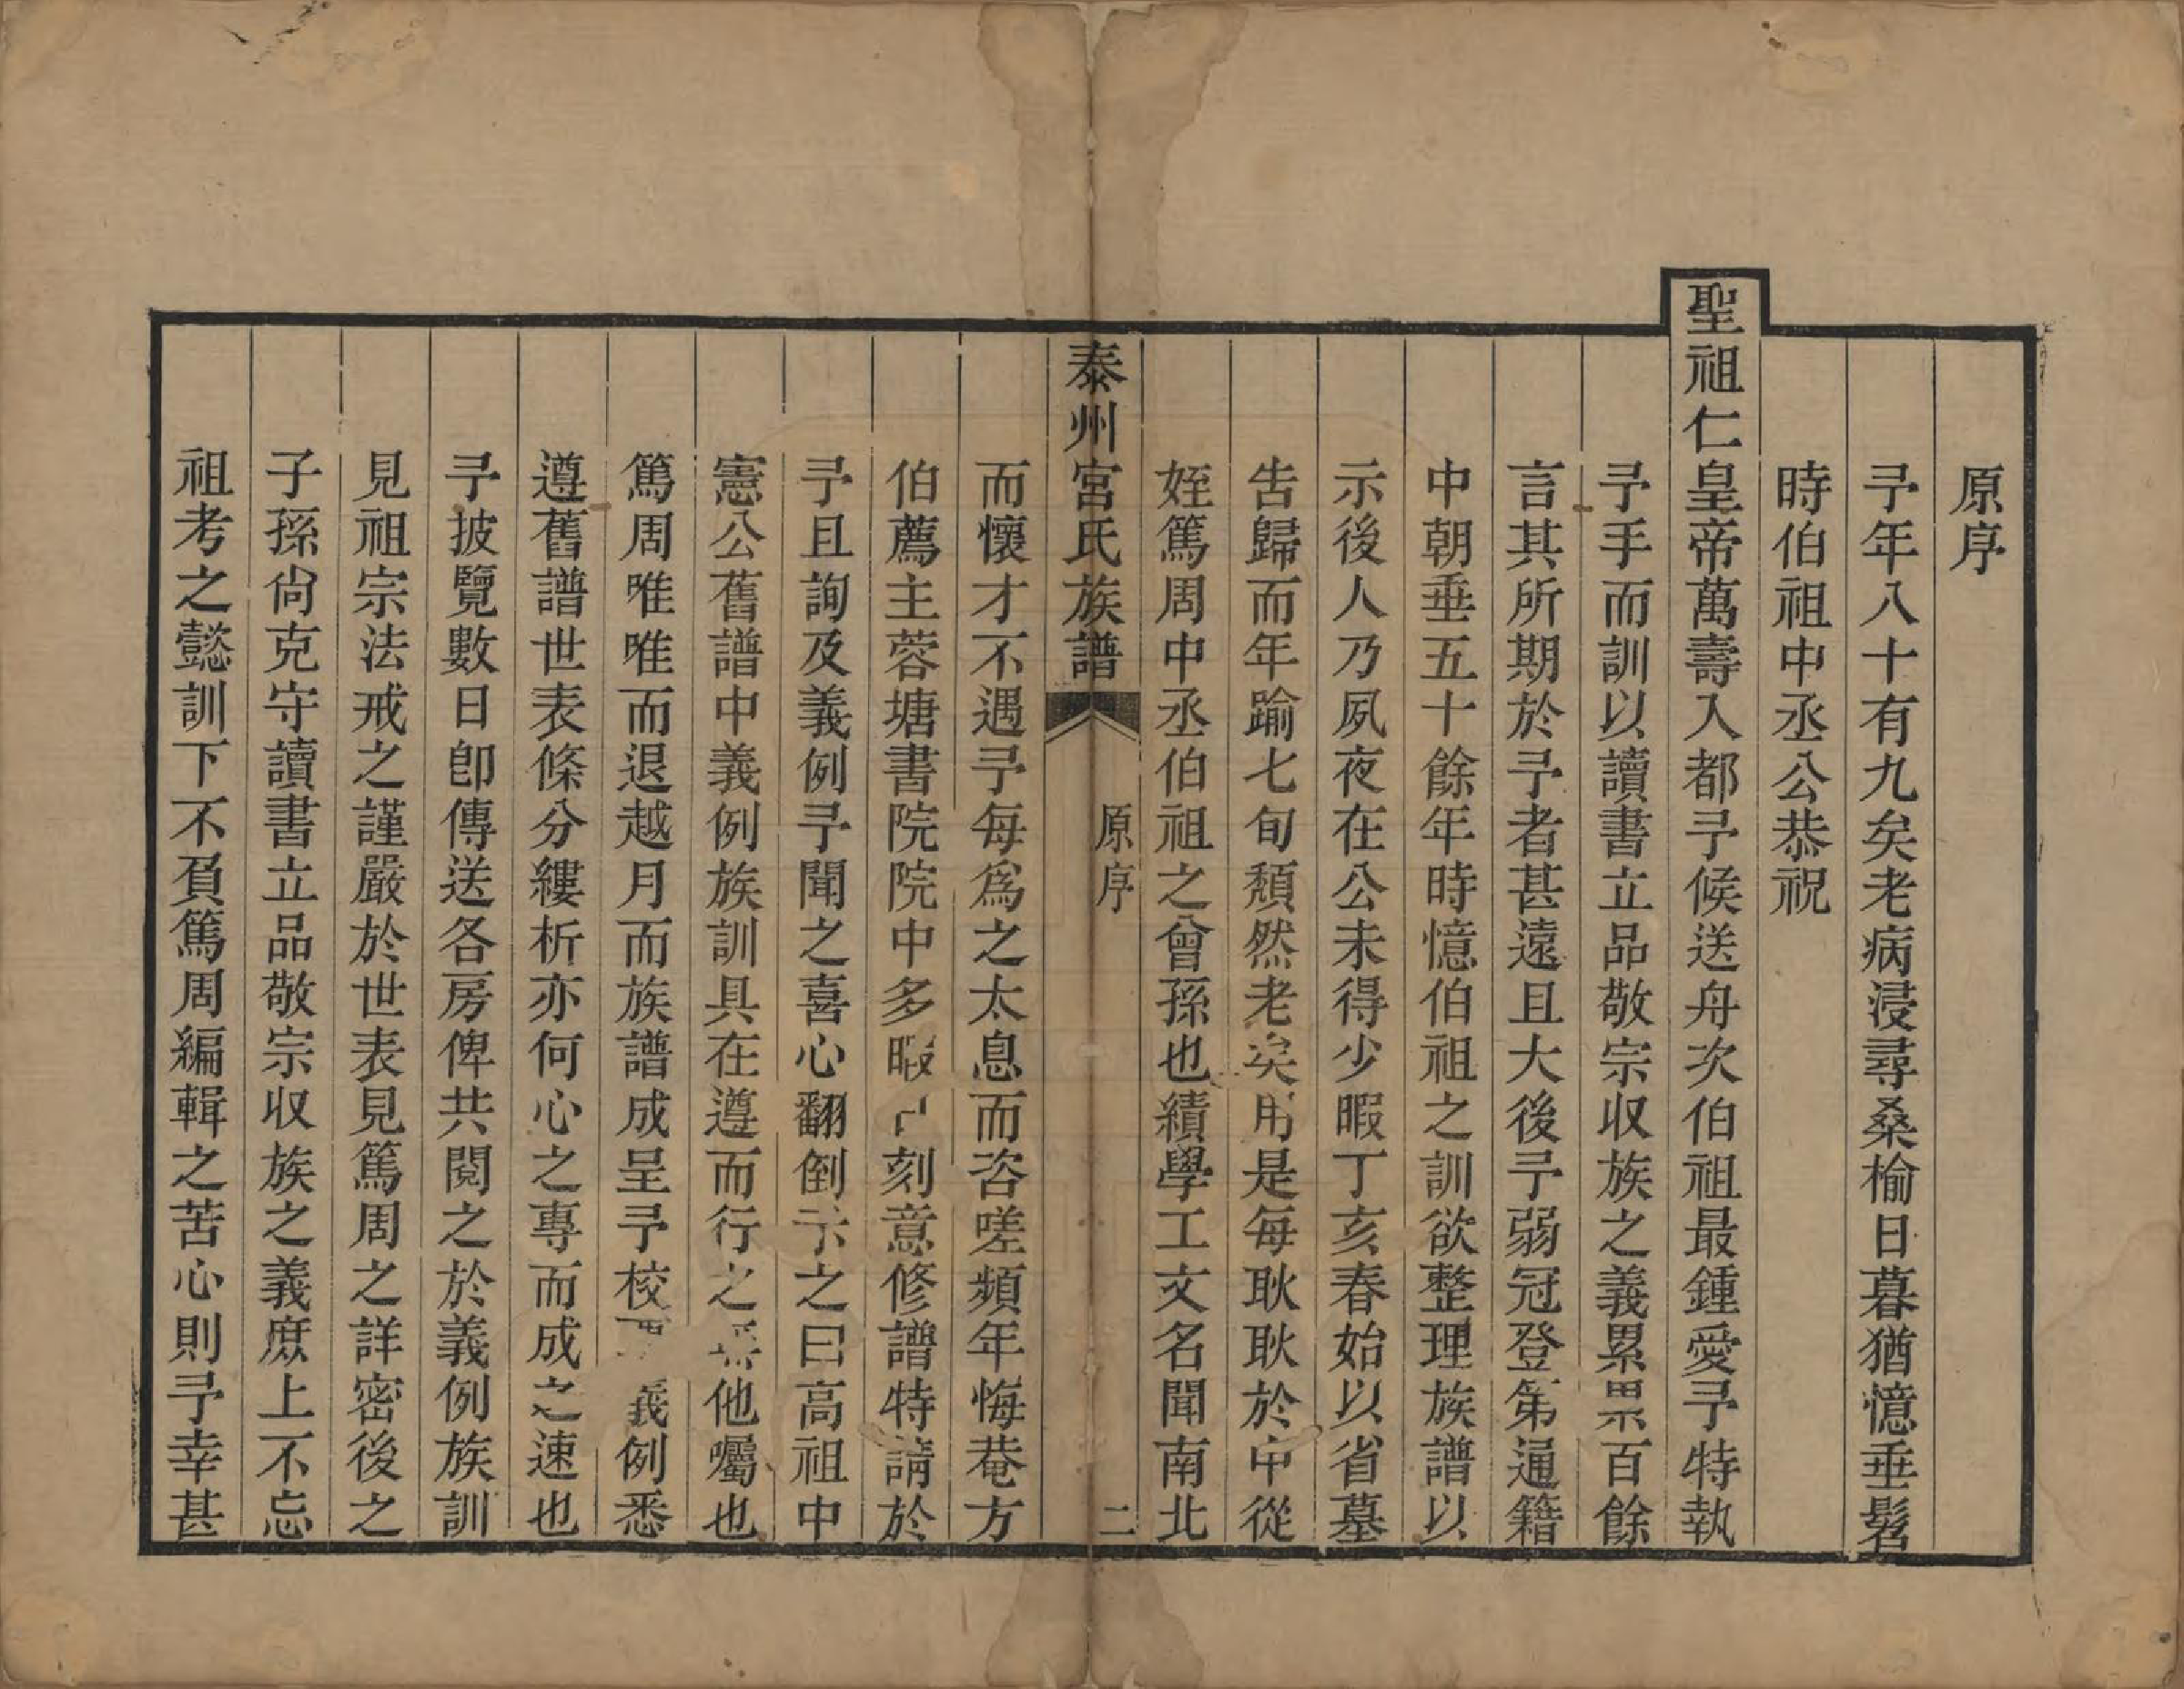 原序
予年八十有九矣老病浸尋桑榆日暮猶憶垂髫
時伯祖中丞公恭祝
聖祖仁皇帝萬壽入都予候送舟次伯祖最鍾愛予特執
予手而訓以讀書立品敬宗收族之義累累百餘
言其所期於予者甚遠且大後予弱冠登第通籍
中朝垂五十餘年時憶伯祖之訓欲整理族譜以
示後人乃夙夜在公未得少暇丁亥春始以省墓
告歸而年踰七旬頹然老矣用是每耿耿於中從
姪篤周中丞伯祖之曾孫也績學工文名聞南北
泰州宮氏族譜
原序
二
而懷才不遇予每為之太息而咨嗟頻年悔菴方
伯薦主蓉塘書院院中多暇刻意修譜特請於
予且詢及義例予聞之喜心翻倒示之曰高祖中
憲公舊譜中義例族訓具在遵而行之無他囑也
篤周唯唯而退越月而族譜成呈予校義例悉
遵舊譜世表條分縷析亦何心之專而成之速也
予披覽數日卽傳送各房俾共閱之於義例族訓
見祖宗法戒之謹嚴於世表見篤周之詳密後之
子孫尙克守讀書立品敬宗收族之義庶上不忘
祖考之懿訓下不負篤周編輯之苦心則予幸甚